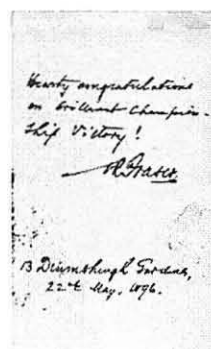 Hearty congratulations
on brilliant Champion-
ship Victory!
Fraser
13 Drumsheugh Gardens,
22nd May, 1896.